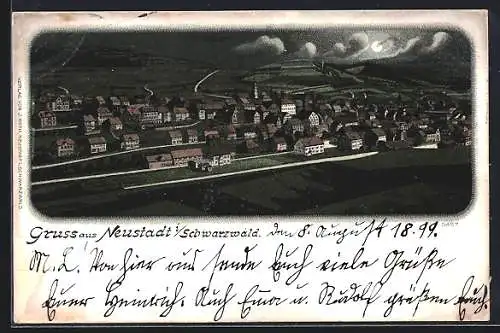 Gruss aus Neustadt i/Schwarzwald. den 8. August 1899.
M. L. Von hier aus sende Euch viele Grüße
Euer Heinrich. Auch Emma u. Rudolf grüßen Euch.